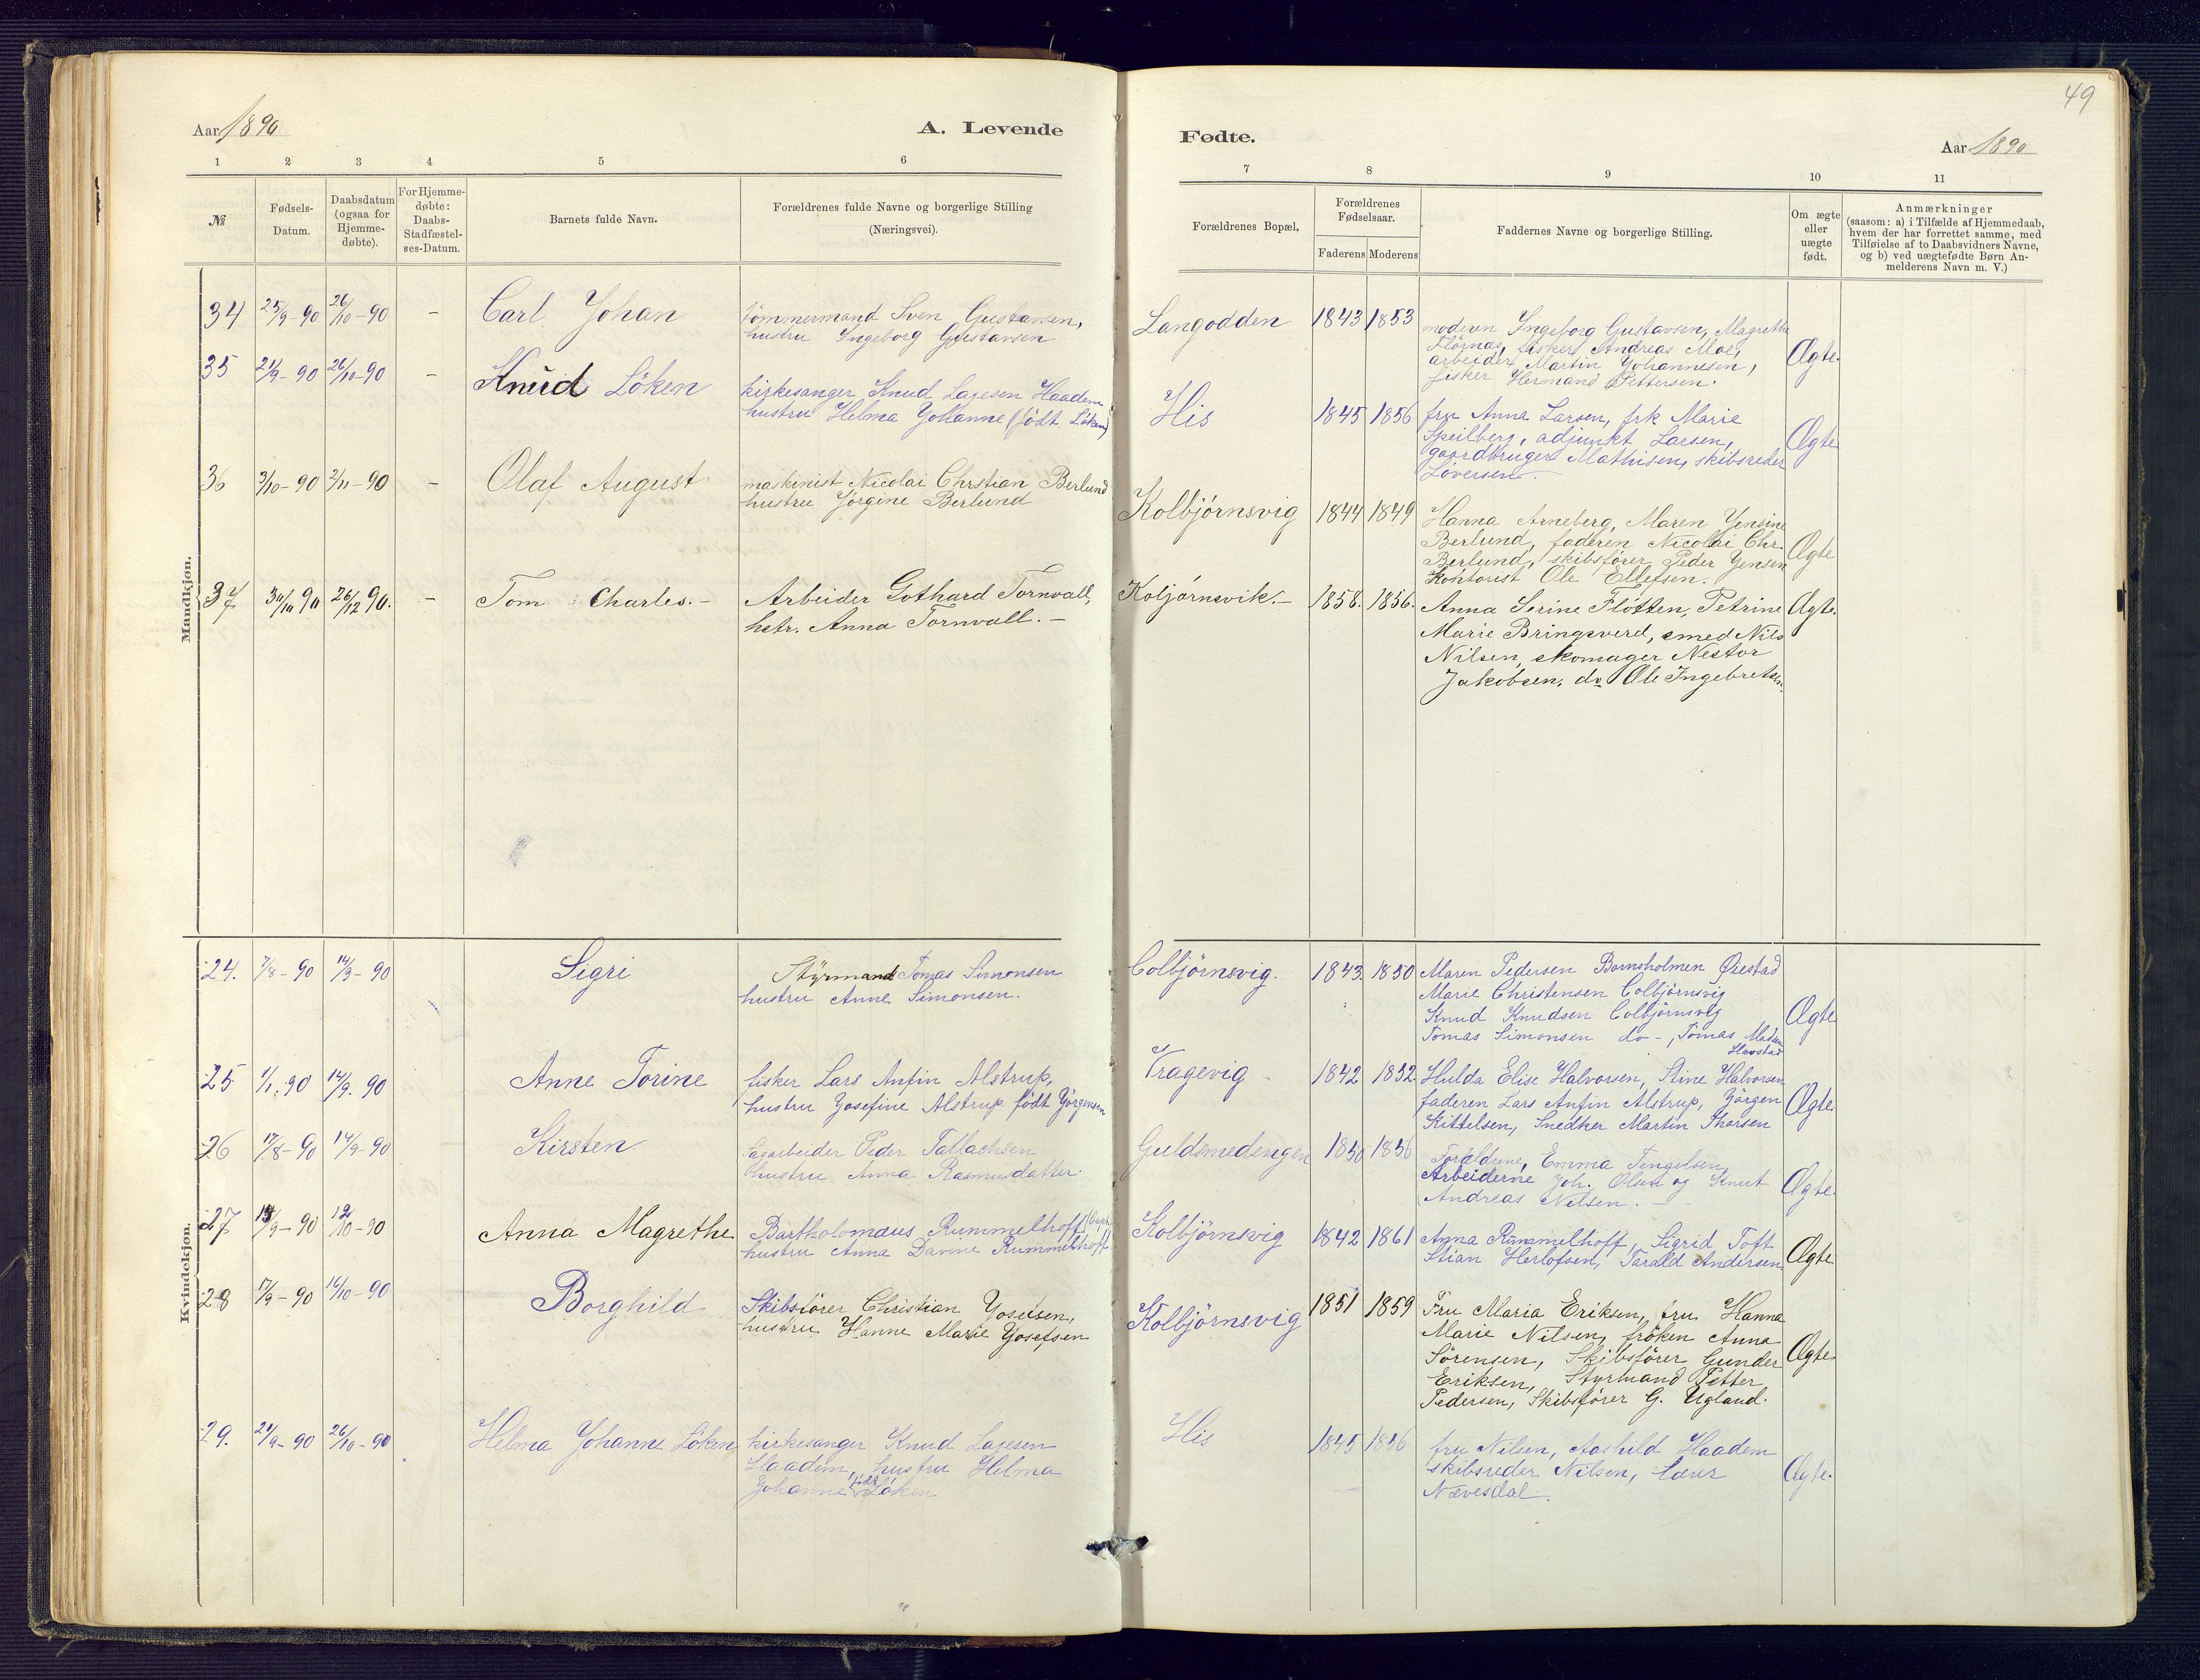 49
Aar 1890
A. Levende
Fødte.
Aar 1890
1 2 3 4 5 6
7 8 9 10 11
№
Fødsels-
Datum.
Daabsdatum
(ogsaa for
Hjemme-
døbte).
For Hjemme-
døbte:
Daabs-
Stadfæstel-
ses-Datum.
Barnets fulde Navn.
Forældrenes fulde Navne og borgerlige Stilling
(Næringsvei).
Forældrenes Bopæl.
Forældrenes
Fødselsaar.
Faderens Moderens
Faddernes Navne og borgerlige Stilling.
Om ægte
eller
uægte
født.
Anmærkninger
(saasom: a) i Tilfælde af Hjemmedaab,
hvem der har forrettet samme, med
Tilføielse af to Daabsvidners Navne,
og b) ved uægtefødte Børn An-
melderens Navn m. V.)
Mandkjøn.
34 25/9-90 26/10-90 - Carl Johan
tömmermand Sven Gustavsen,
hustru Ingeborg Gustavsen
Langodden 1843 1853
modern Ingeborg Gustavsen, Magrethe
fisker Andreas Moe,
arbeider Martin Johannesen,
fisker Hermand Pettersen.
Ægte.
35 21/9-90 26/10-90 - Knud Löken
kirkesanger Knud Lajesen Haadem
hustru Helma Johanne (födt Löken)
His 1845 1856
fru Anna Larsen, frk Marie
Speilberg, adjunkt Larsen,
gaardbruger Mathisen, skibsreder
Löversen.
Ægte
36 3/10-90 2/11-90 - Olaf August
maskinist Nicolai Chrstian Berlund
hustru Jörgine Berlund
Kolbjörnsvig 1844 1849
Hanna Arneberg, Maren Jensine
Berlund, faderen Nicolai Chr.
Berlund, skibsförer Peder Jensen
Kontorist Ole Ellefsen.
Ægte
37 30/10 90 26/12 90. - Tom Charles.-
Arbeider Gothard Tornvall,
hstr. Anna Tornvall.-
Koljörnsvik.- 1858. 1856.
Anna Serine Flötten, Petrine
Marie Bringsverd, smed Nils
Nilsen, skomager Nestor
Jakobsen, do Ole Ingebretsen.
Ægte.
Kvindekjøn.
24. 7/8-90 14/9-90 Sigri
Styrmand Tomas Simonsen
hustru Anne Simonsen.
Colbjörnsvig. 1843. 1850
Maren Pedersen Bornsholmen Örestad
Marie Christensen Colbjörnsvig
Knud Knudsen Colbjörnsvig
Tomas Simonsen do-, Tomas
Ægte
25 1/1.90 14/9.90 Anne Torine
fisker Lars Anfin Alstrup,
hustru Josefine Alstrup födt Jörgensen
Vragevig - 1842 1852.
Hulda Elise Halvorsen, Stine Halvorsen
faderen Lars Anfin Alstrup, Jörgen
Kittelsen, Snedker Martin Thorsen
Ægte.
26 17/8-90 14/9-90 Kirsten
Sagarbeider Peder Tallachsen
hustru Anna Rasmusdatter.
Guldsmedengen 1850 1856
Foraldrene, Emma Tengelsen,
Arbeiderne Joh. Olsen og Knut
Andreas Nilsen.-
Ægte.
27 /9-90 12/10-90 Anna Magrethe
Bartholomæus Rummelhoff (Capt.
hustru Anna Davine Rummelhoff
Kolbjörnsvig 1842 1861
Anna Rummelhoff, Sigrid Toft
Stian Herlofsen, Tarald Andersen
Ægte
28 17/9-90 16/10-90 Borghild
Skibsförer Christian Josefsen,
hustru Hanne Marie Josefsen
Kolbjörnsvig 1851 1859
Fru Maria Eriksen, fru Hanna
Marie Nilsen, fröken Anna
Sörensen, Skibsförer Gunder
Eriksen, Styrmand Petter
Pedersen, Skibsförer G. Ugland.
Ægte.
29. 21/9-90 26/10-90 Helma Johanne Löken
kirkesanger Knud Lajesen
Haadem, hustru Helma
Johanne född Löken
His 1845 1856
fru Nilsen, Aashild Haadem
skibsreder Nilsen, lærer
Nævesdal.
Ægte.